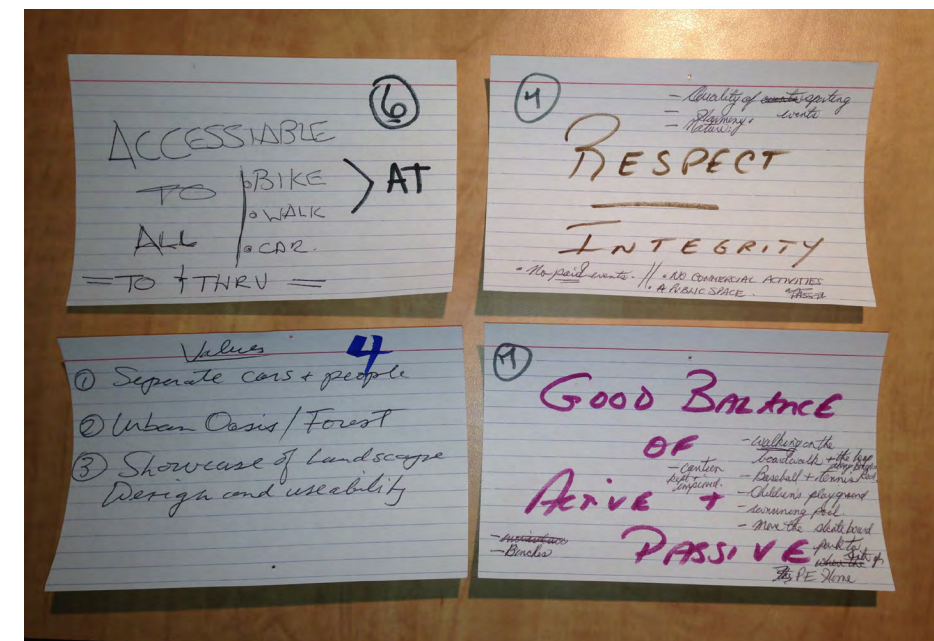 6
ACCESSIABLE
TO
ALL
• BIKE
• WALK
• CAR.
> AT
= TO + THRU =
4
- Quality of sporting
events
- Harmony.
- Nature
RESPECT
INTEGRITY
• No paid events. // • NO COMMERCIAL ACTIVITIES
• A PUBLIC SPACE.
Values
4
① Seperate cars + people
② Urban Oasis / Forest
③ Showcase of Landscape
Design and useability
GOOD BALANCE
OF
ACTIVE +
PASSIVE
- canteen
kept
- Benches
- walking on the
boardwalk + the loop
- Baseball + tennis
- Children's playground
- swimming pool
- Move the skateboard
park to
PE Home